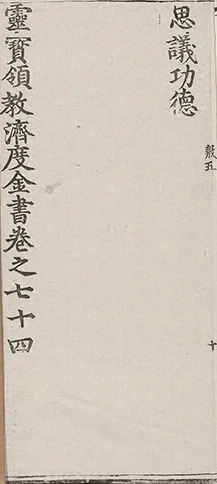 思議功德
靈寶領教濟度金書卷之七十四
十